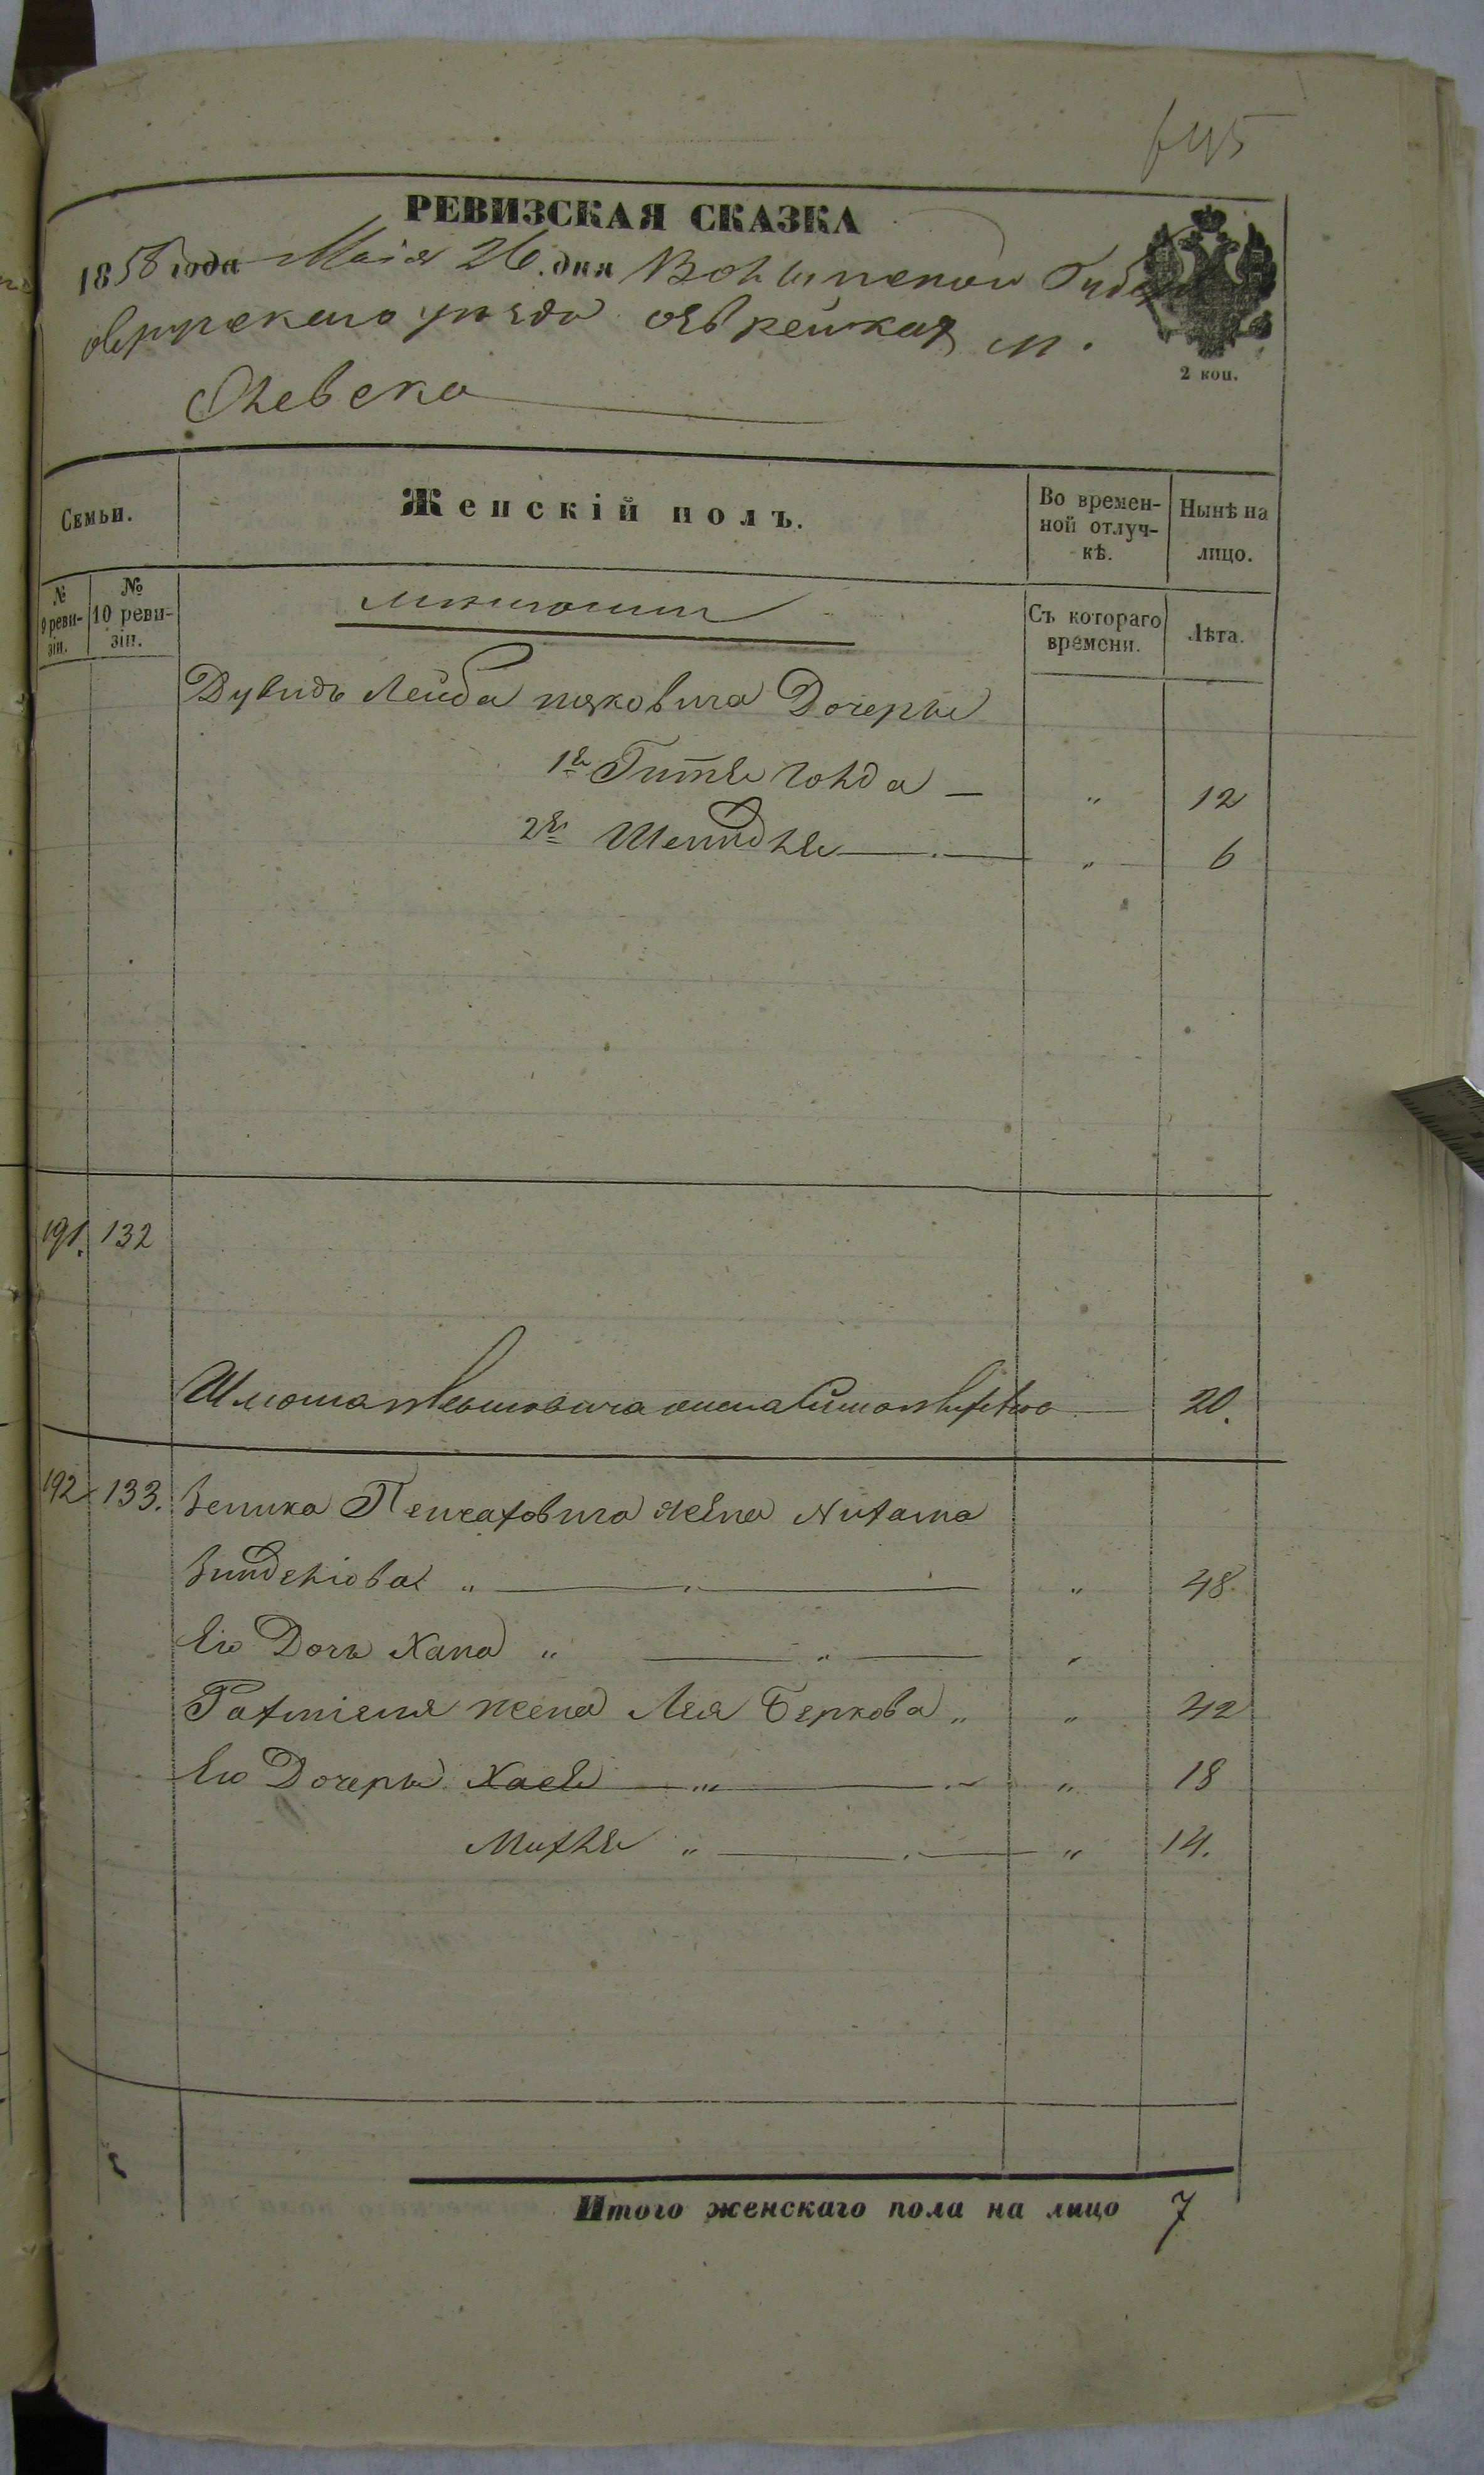 645
РЕВИЗСКАЯ СКАЗКА
1858 года Маія 26 дня Волынской Губер
овручскаго уѣзда еврейская м.
Олевска
2 коп.
Семьи.
Женскій полъ.
Во времен-
ной отлуч-
кѣ.
Нынѣ на
лицо.
№
9 реви-
зіи.
№
10 реви-
зіи.
мѣщане
Съ котораго
времени.
Лѣта.
Дувидъ Лейба Ицковича Дочеры
1я Гитля Голда — " 12
2я Шейндля — " 6
191. 132
Шлиома жена 20.
192 133. Зелика жена Нихама
Зинделіова " — " 48.
Его Дочь Хана " — "
жена Лея Беркова " " 42
Его Дочеры Хаея " — " 18
Михля " — " 14.
Итого женскаго пола на лицо 7